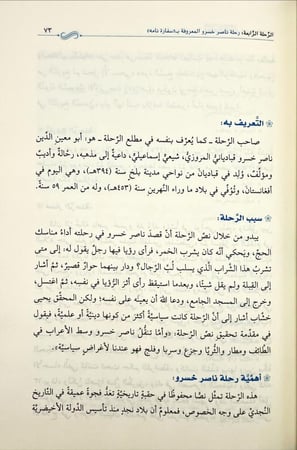 الرّحلة الرّابعة: رحلة ناصر خسرو المعروفة بـ«سفارة نامه»
٧٣
التَّعريف به:
صاحب الرّحلة - كما يُعرّف بنفسه في مطلع الرّحلة - هو: أبو معين الدّين
ناصر خسرو قبادياني المروزيّ، شيعيٌّ إسماعيليٌّ، داعيةٌ إلى مذهبه، رحّالةٌ وأديبٌ
ومؤلِّفٌ، وُلِد في قباديان من نواحي مدينة بلخ سنة (٣٩٤هـ)، وهي اليوم في
أفغانستان، وتُوُفّي في بلاد ما وراء النّهرين سنة (٤٥٣هـ)، وله من العمر ٥٩ سنةً.
سبب الرّحلة:
يبدو من خلال نصّ الرّحلة أنّ قصدَ ناصر خسرو في رحلته أداءُ مناسك
الحجّ، ويَحكي أنّه كان يشرب الخمر، فرأى رؤيا فيها رجلٌ يقول له: إلى متى
تشربُ هذا الشَّراب الّذي يسلب لُبَّ الرّجال؟ ودار بينهما حوارٌ قصيرٌ، ثمّ أشار
إلى القِبلة ولم يقل شيئًا، وبعدما استيقظ رأى أثرَ الرّؤيا في نفسه، ثمّ اغتسل،
وخرج إلى المسجد الجامع، ودعا اللهَ أن يعينَه على نفسه؛ ولكن المحقّق يحيى
خشّاب أشار إلى أنّ الرّحلة كانت سياسيّةً أكثرَ من كونها دينيّةً أو علميّةً، فيقول
في مقدّمة تحقيق نصّ الرّحلة: «وأمّا تنقُّلُ ناصر خسرو وسط الأعراب في
الطّائف ومطار والثُّريّا وجزع وسربا وفلج فهو عندنا لأغراضٍ سياسيّةٍ».
أهمّيّة رحلة ناصر خسرو:
هذه الرّحلة تمثّل نصًّا محفوظًا في حقبةٍ تاريخيّةٍ تعُدُّ فجوةً عميقةً في التّاريخ
النّجديّ على وجه الخصوص، فمعلومٌ أن بلاد نجدٍ منذ تأسيس الدّولة الأخيضريّة